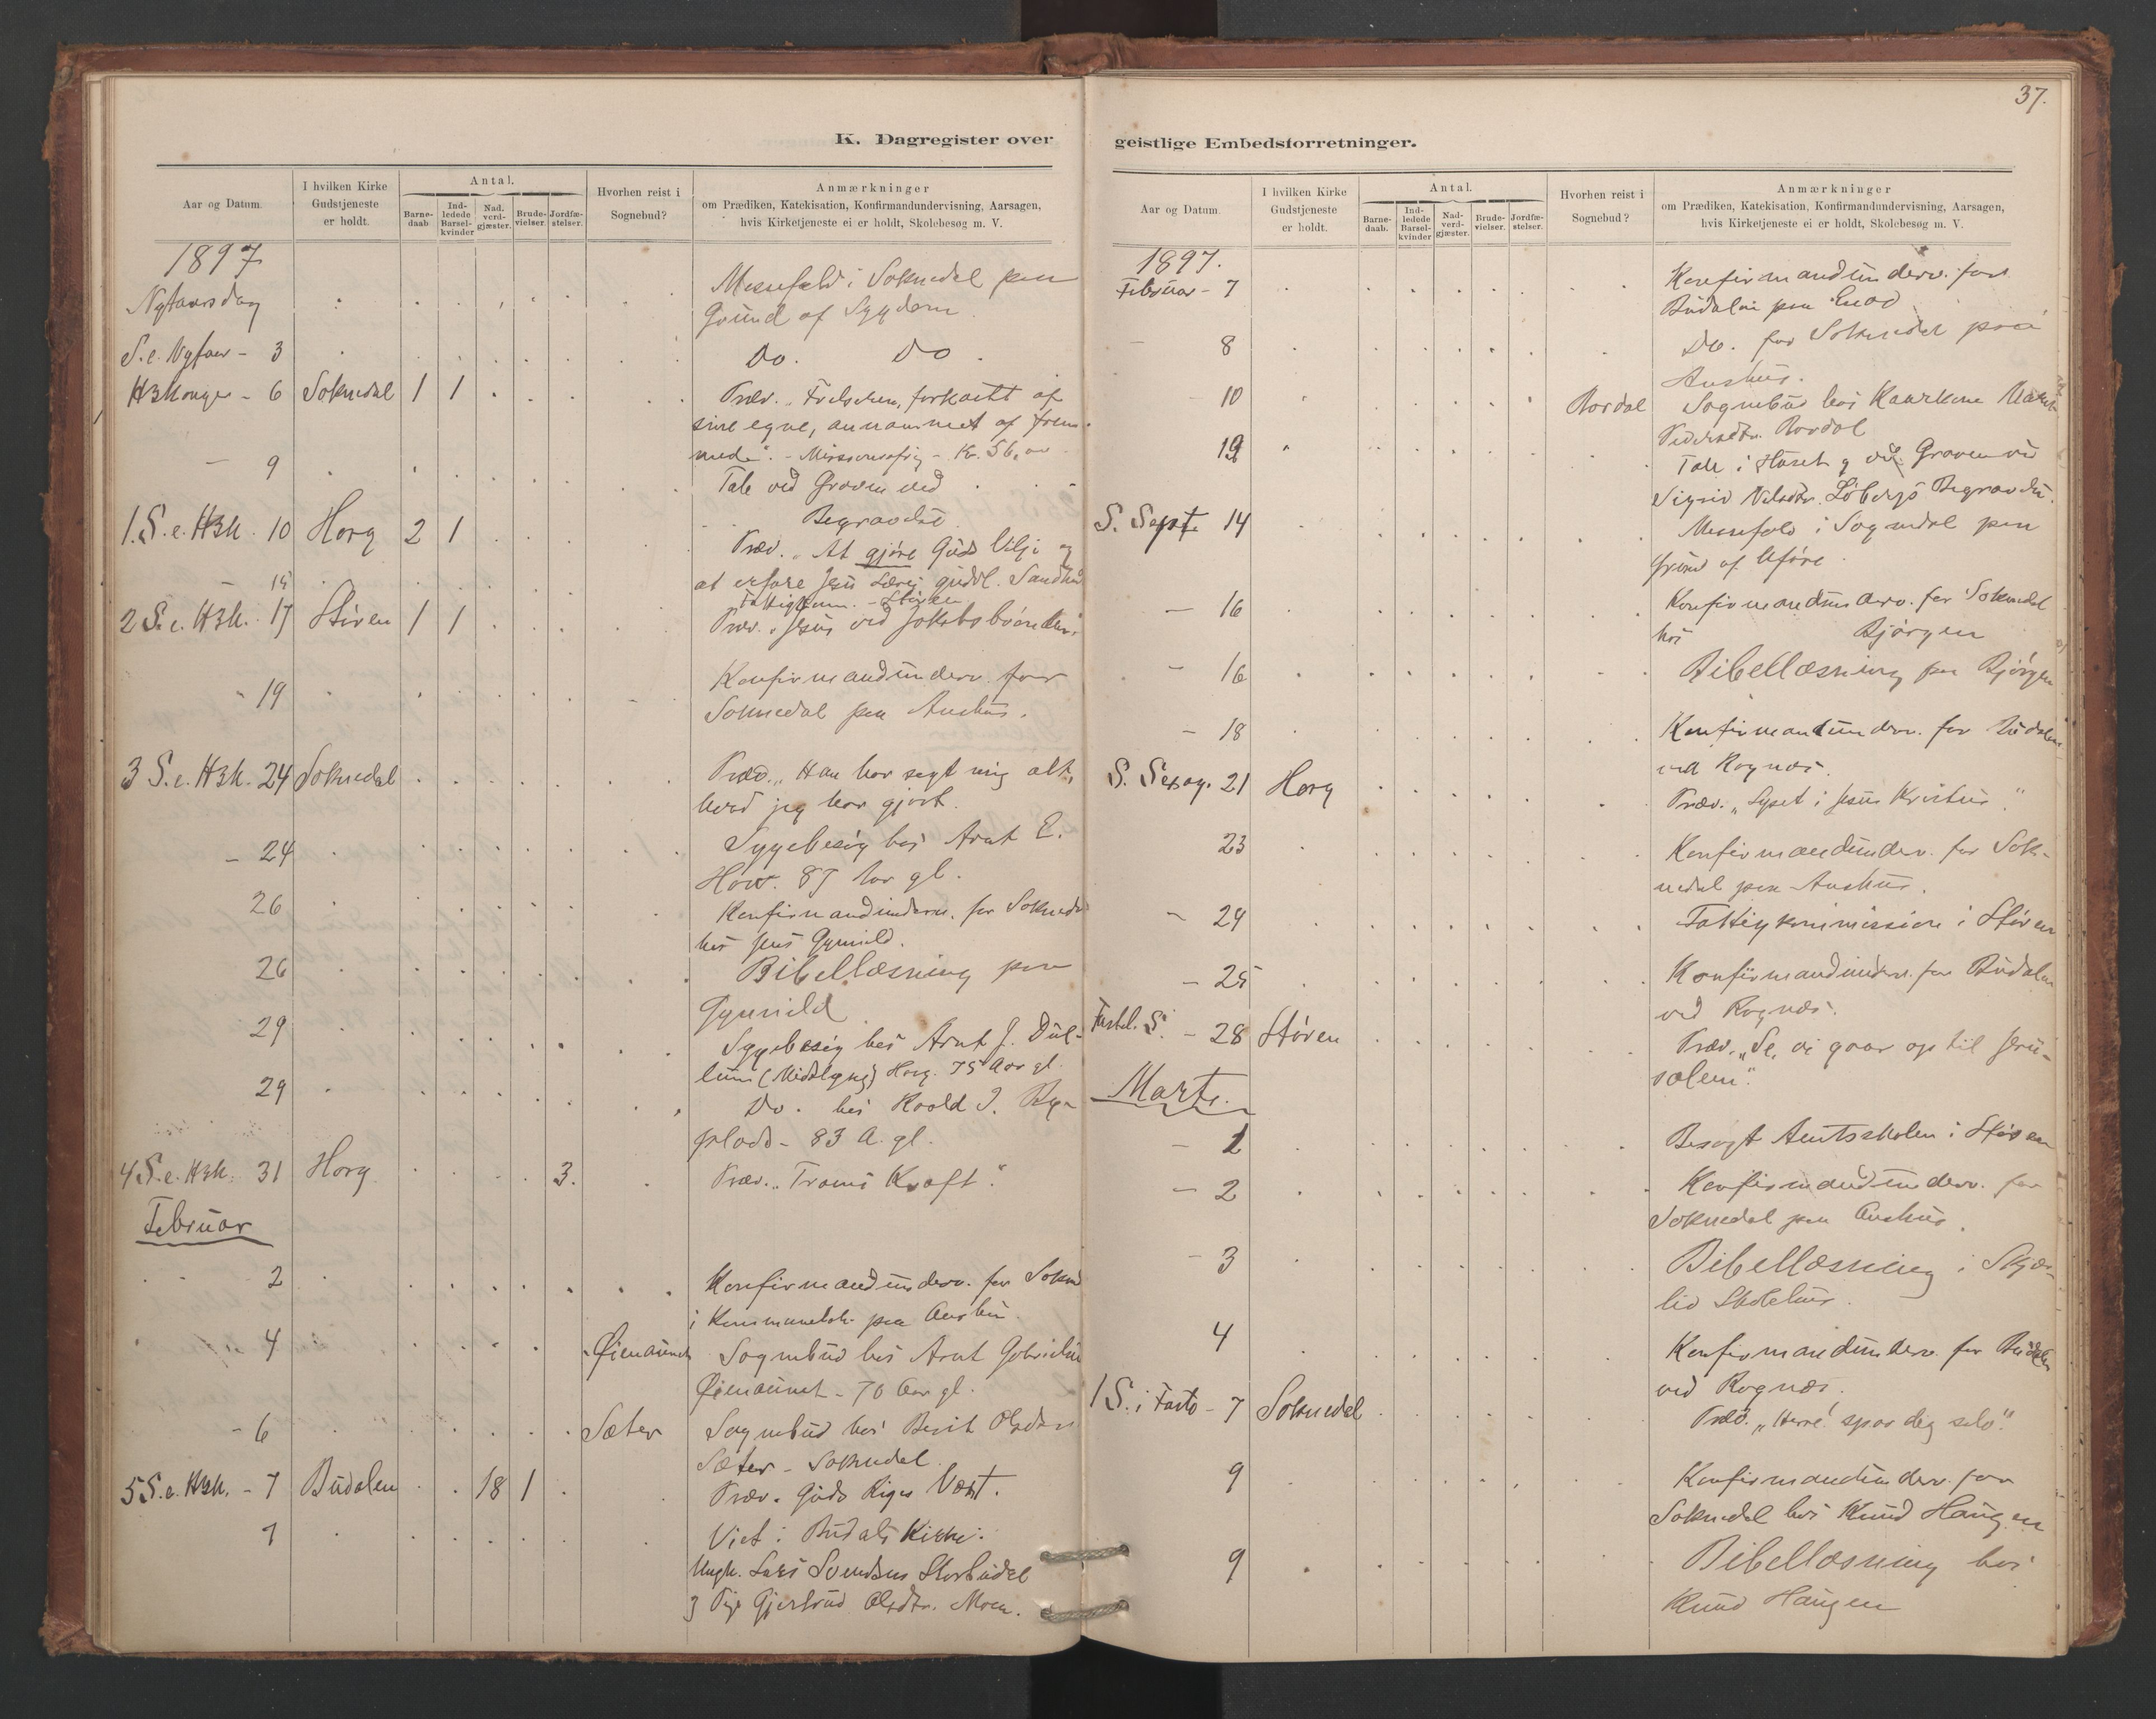 K. Dagregister over
Aar og Datum.
I hvilken Kirke
Gudstjeneste
er holdt.
Antal.
Barne-
daab
Ind-
ledede
Barsel-
kvinder
Nad.
verd-
gjæster.
Brude-
vielser.
Jordfæ-
stelser.
Hvorhen reist i
Sognebud?
Anmærkninger
om Prædiken, Katekisation, Konfirmandundervisning, Aarsagen,
hvis Kirketjeneste ei er holdt, Skolebesøg m. V.
1897
Nytaarsdag
Messefald i Soknedal paa
Grund af Sygdom
S.e. Nytaar - 3
Do. Do.
H3Konger - 6 Soknedal 1 1
Præd. Frelseren, forkastet af
sine egne, annammet af frem-
mede". - Missionsoffring - Kr. 56,00
- 9
Tale ved Graven ved
Begravelse
1.S.e. H3K. 10 Horg 2 1
Præd. "At gjøre Guds Vilje og
at erfare Jesu Læres guddl. Sandhed
- 15
Fattigkom. - Støren
2 S.e. H3K. 17 Støren 1 1
Præd. "Jesus ved Jakobsbrønden.
" 19
Konfirmandunderv. for
Soknedal paa Aushus.
3 S.e. H3K. 24 Soknedal
Præd. "Han har sagt mig alt,
hvad jeg har gjort.
- 24
Sygebesøg hos Arnt E.
Hov. 87 Aar gl.
26
Konfirmandunderv. for Soknedal
hos Jens Gynnild.
26
Bibellæsning paa
Gynnild
29
Sygebesøg hos Arnt J. Dul-
lum Horg. 75 Aar gl.
29
Do. hos Roald J. Ry-
plads - 83 A. gl.
4 S.e. H3K. 31 Horg 3.
Præd. "Troens Kraft".
Februar
2
Konfirmandunderv. for Sokned
i Kommunelok. paa Aushus
4 Øienaunet
Sognebud hos Arnt
Øienaunet - 70 Aar gl.
- 6 Sæter
Sognebud hos Berit Olsdatr
Sæter - Soknedal.
5 S.e. H3K. - 7 Budalen 18 1
Præd. Guds Riges Vext.
7
Viet i Budals Kirke:
Ungk. Lars Svendsen Storbudal
og Pige Gjertrud Olsdtr. Moen.
37.
geistlige Embedsforretninger.
Aar og Datum.
I hvilken Kirke
Gudstjeneste
er holdt.
Antal.
Barne-
daab.
Ind-
ledede
Barsel-
kvinder
Nad-
verd-
gjæster.
Brude-
vielser.
Jordfæ-
stelser.
Hvorhen reist i
Sognebud?
Anmærkninger
om Prædiken, Katekisation, Konfirmandundervisning, Aarsagen,
hvis Kirketjeneste ei er holdt, Skolebesøg m. V.
1897.
Februar - 7
Konfirmandunderv. for
Budalen paa Enod
- 8
Do. for Soknedal paa
Aushus.
- 10 Rordal
Sognebud hos
Pedersdtr. Rordal
19
Tale i Huset og ved Graven ved
Sigrid Nelsdtr. Løbergs Begravelse.
S. Sept. 14
Messefald i Sognedal paa
Grund af Uføre.
- 16
Konfirmandunderv. for Soknedal
hos Bjørgen
- 16
Bibellæsning paa Bjørgen
- 18
Konfirmandunderv. for Budalen
ved Rognæs.
S. Sexag. 21 Horg
Præd. "Lyset i Jesus Kristus".
23
Konfirmandunderv. for Sok-
nedal paa Aushus.
- 24
Fattigkommission i Støren
- 25
Konfirmandunderv. for Budalen
ved Rognæs.
Fastel. S. - 28 Støren
Præd. "Se, vi gaar op til Jeru-
salem".
Marts.
- 1
Besøgt Amtsskolen i Støren
- 2
Konfirmandunderv. for
Soknedal paa Aushus.
- 3
Bibellæsning i Skjær-
lid Skolehus.
4
Konfirmandunderv. for Budalen
ved Rognæs.
1 S. i Faste - 7 Soknedal
Præd. "Herre! spar dig selv".
9
Konfirmandunderv. for
Soknedal hos Knud Haugen
9
Bibellæsning hos
Knud Haugen